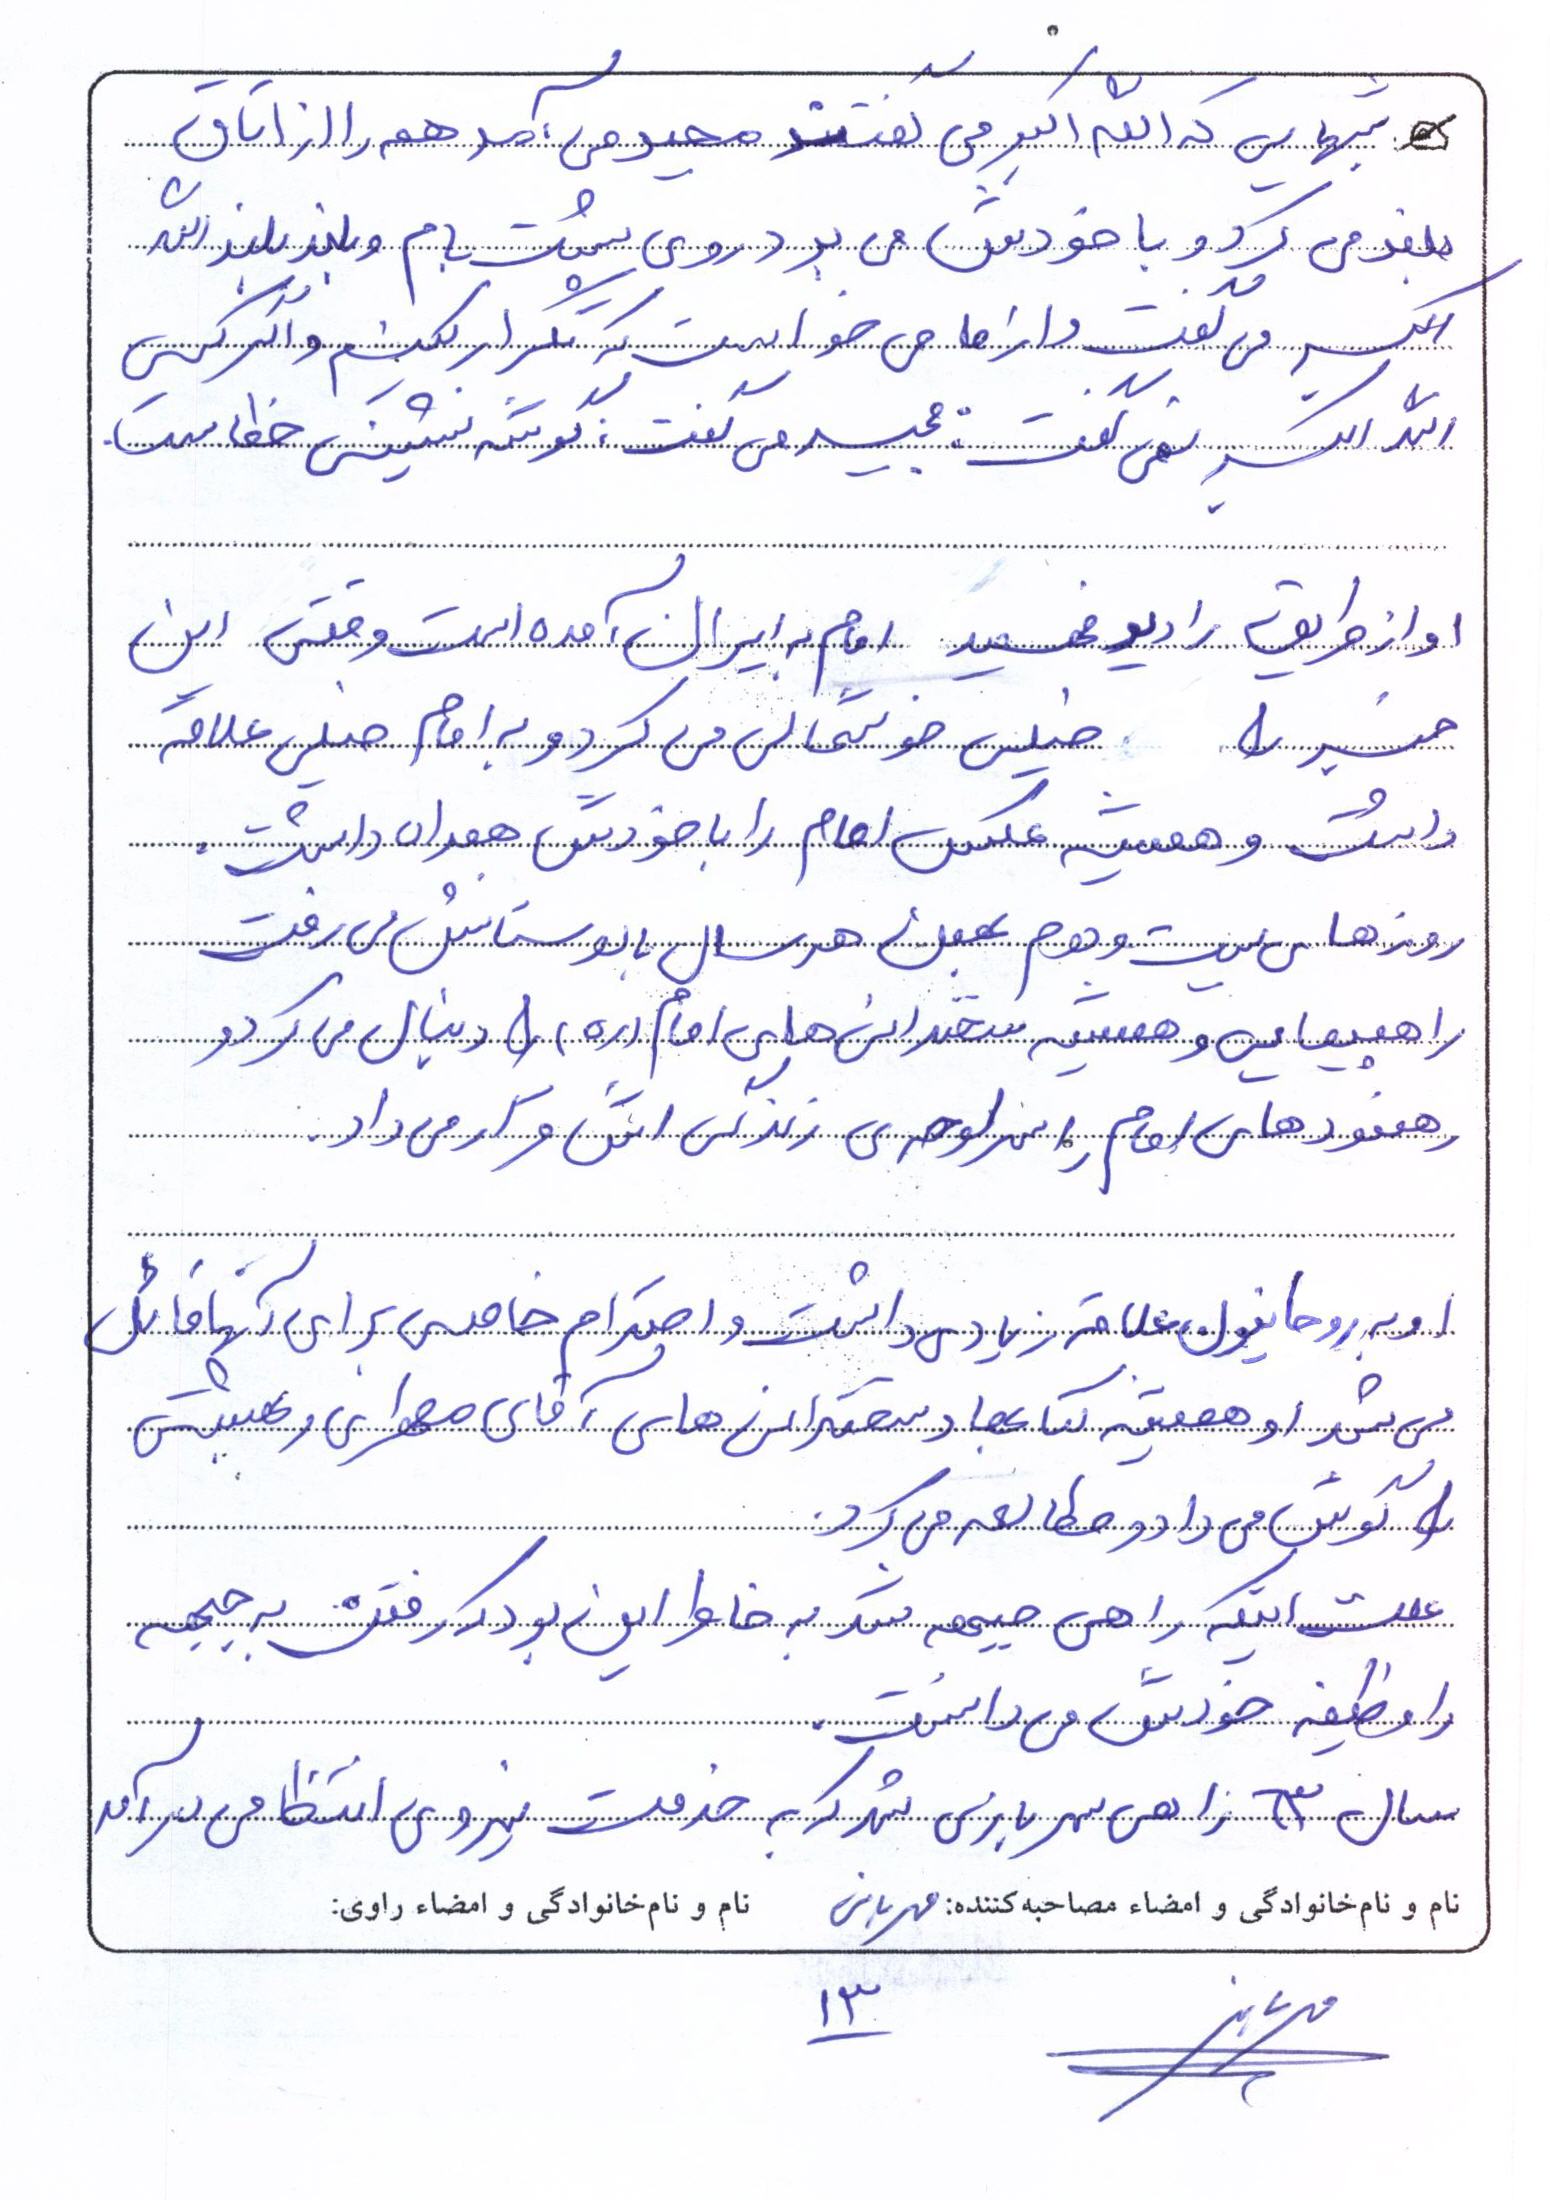 شبهایی که الله اکبر می گفتند مجید می آمد همه را از اتاق
بلند می کرد و با خودش می برد روی پشت بام و بلند بلند الله
اکبر می گفت و از ما می خواست که تکرار کنیم و اگر کسی
الله اکبر نمی گفت: مجید می گفت: گوشه نشینی خطاست.
او از طریق رادیو فهمید امام به ایران آمده است وقتی این
خبر را خیلی خوشحالی می کرد و به امام خیلی علاقه
داشت و همیشه عکس امام را با خودش همراه داشت.
روزهای بیست و دوم بهمن هر سال با دوستانش می رفت
راهپیمایی و همیشه سخنرانی های امام (ره) را دنبال می کرد و
رهنمودهای امام را سرلوحه ی زندگی اش قرار می داد.
او به روحانیون علاقه زیادی داشت و احترام خاصی برای آنها قائل
می شد او همیشه کتابها و سخنرانی های آقای مطهری و بهشتی
را گوش می داد و مطالعه می کرد.
علت اینکه راهی جبهه شد به خاطر این بود که رفتن به جبهه
را وظیفه خودش می دانست.
سال ۶۳ راهی سربازی شد که به خدمت نیروی انتظامی در آمد
نام و نام‌خانوادگی و امضاء مصاحبه‌کننده: مهربانی نام و نام‌خانوادگی و امضاء راوی:
مهربانی
۱۳